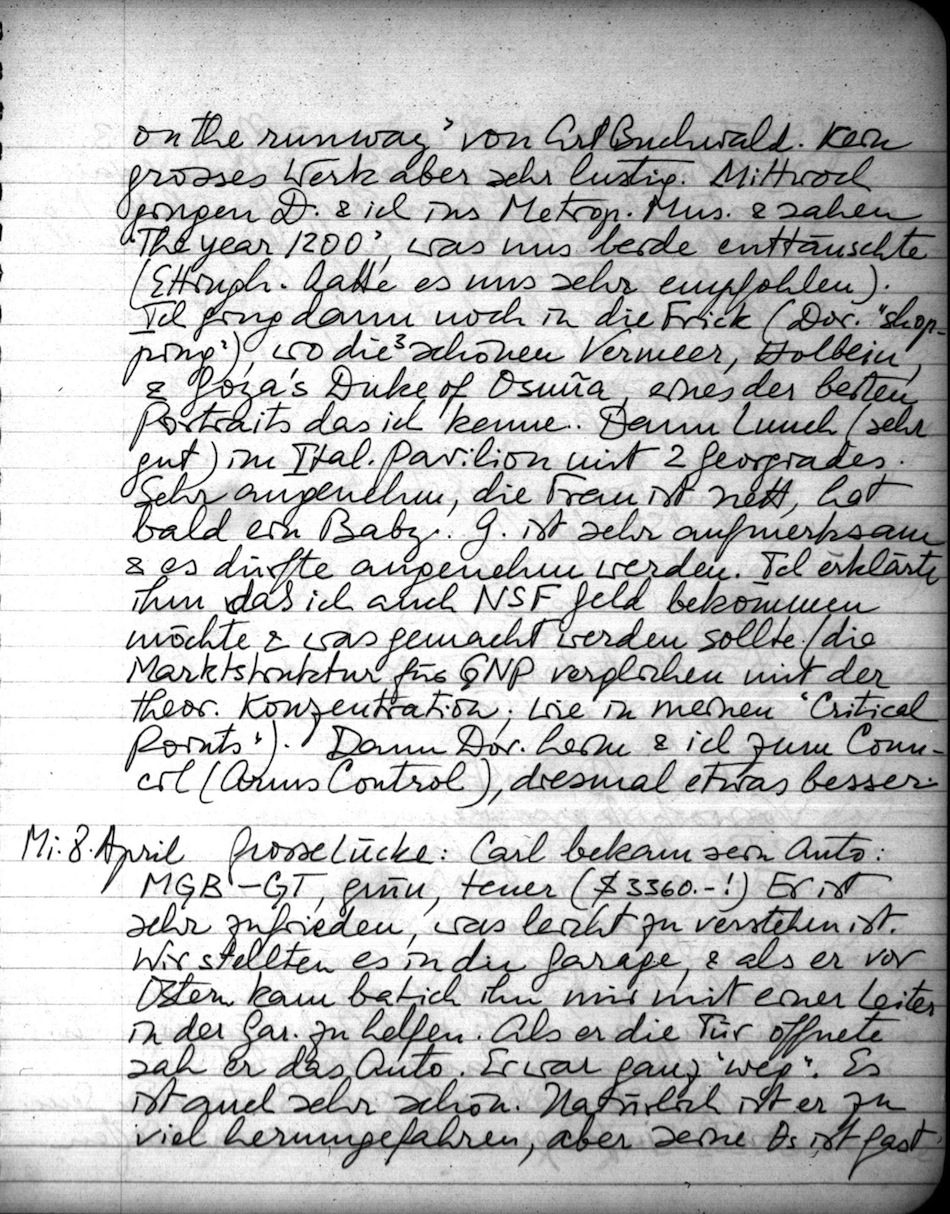 on the runway' von Art Buchwald. Kein
grosses Werk aber sehr lustig. Mittwoch
gingen D. & ich ins Metrop. Mus. & sahen
'The year 1200', was uns beide enttäuschte
(Ettingh. hatte es uns sehr empfohlen).
Ich ging dann noch in die Frick (Dor. "shop-
ping"), wo die 3 schönen Vermeer, Holbein,
& Goya's Duke of Osuña, eines der besten
Portraits das ich kenne. Dann Lunch (sehr
gut) im Ital. Pavilion mit 2 Georgiades.
Sehr angenehm, die Frau ist nett, hat
bald ein Baby. G. ist sehr aufmerksam
& es dürfte angenehm werden. Ich erklärte
ihm das ich auch NSF Geld bekommen
möchte & was gemacht werden sollte (die
Marktstruktur für GNP verglichen mit der
theor. Konzentration, wie in meinen 'Critical
Points'). Dann Dor. heim & ich zum Coun-
cil (Arms Control), diesmal etwas besser.
Mi. 8. April Grosse Lücke: Carl bekam sein Auto:
MGB-GT, grün, teuer ($3360.-!) Er ist
sehr zufrieden, was leicht zu verstehen ist.
Wir stellten es in die Garage, & als er vor
Ostern kam bat ich ihn mir mit einer Leiter
in der Gar. zu helfen. Als er die Tür öffnete
sah er das Auto. Er war ganz "weg". Es
ist auch sehr schön. Natürlich ist er zu
viel herumgefahren, aber seine ist fast